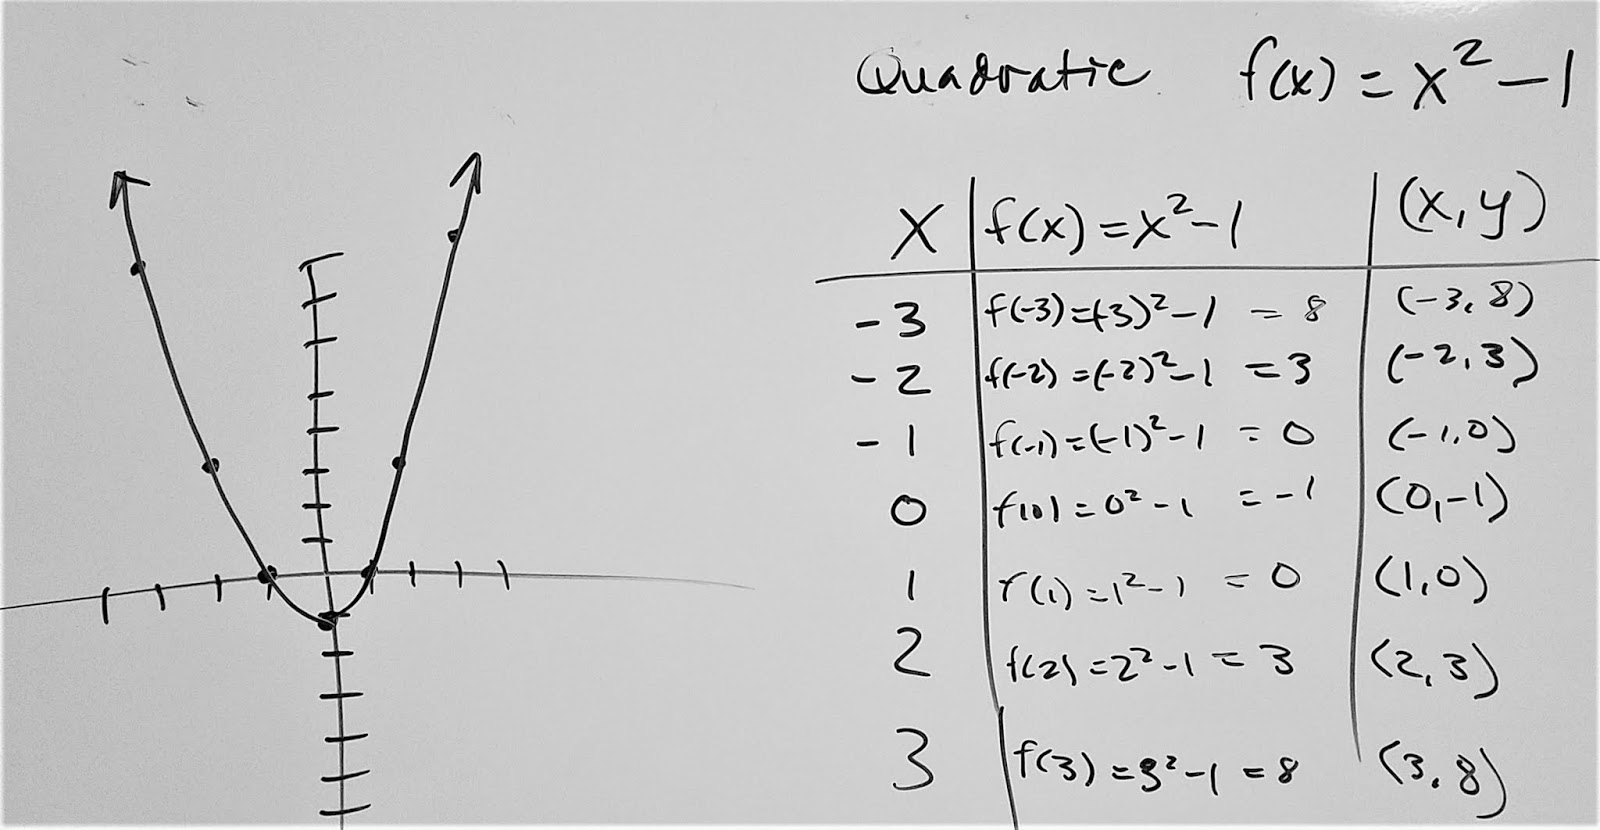 Quadratic f(x) = x² - 1
x f(x) = x² - 1 (x, y)
-3 f(-3) = (-3)² - 1 = 8 (-3, 8)
-2 f(-2) = (-2)² - 1 = 3 (-2, 3)
-1 f(-1) = (-1)² - 1 = 0 (-1, 0)
0 f(0) = 0² - 1 = -1 (0, -1)
1 f(1) = 1² - 1 = 0 (1, 0)
2 f(2) = 2² - 1 = 3 (2, 3)
3 f(3) = 3² - 1 = 8 (3, 8)